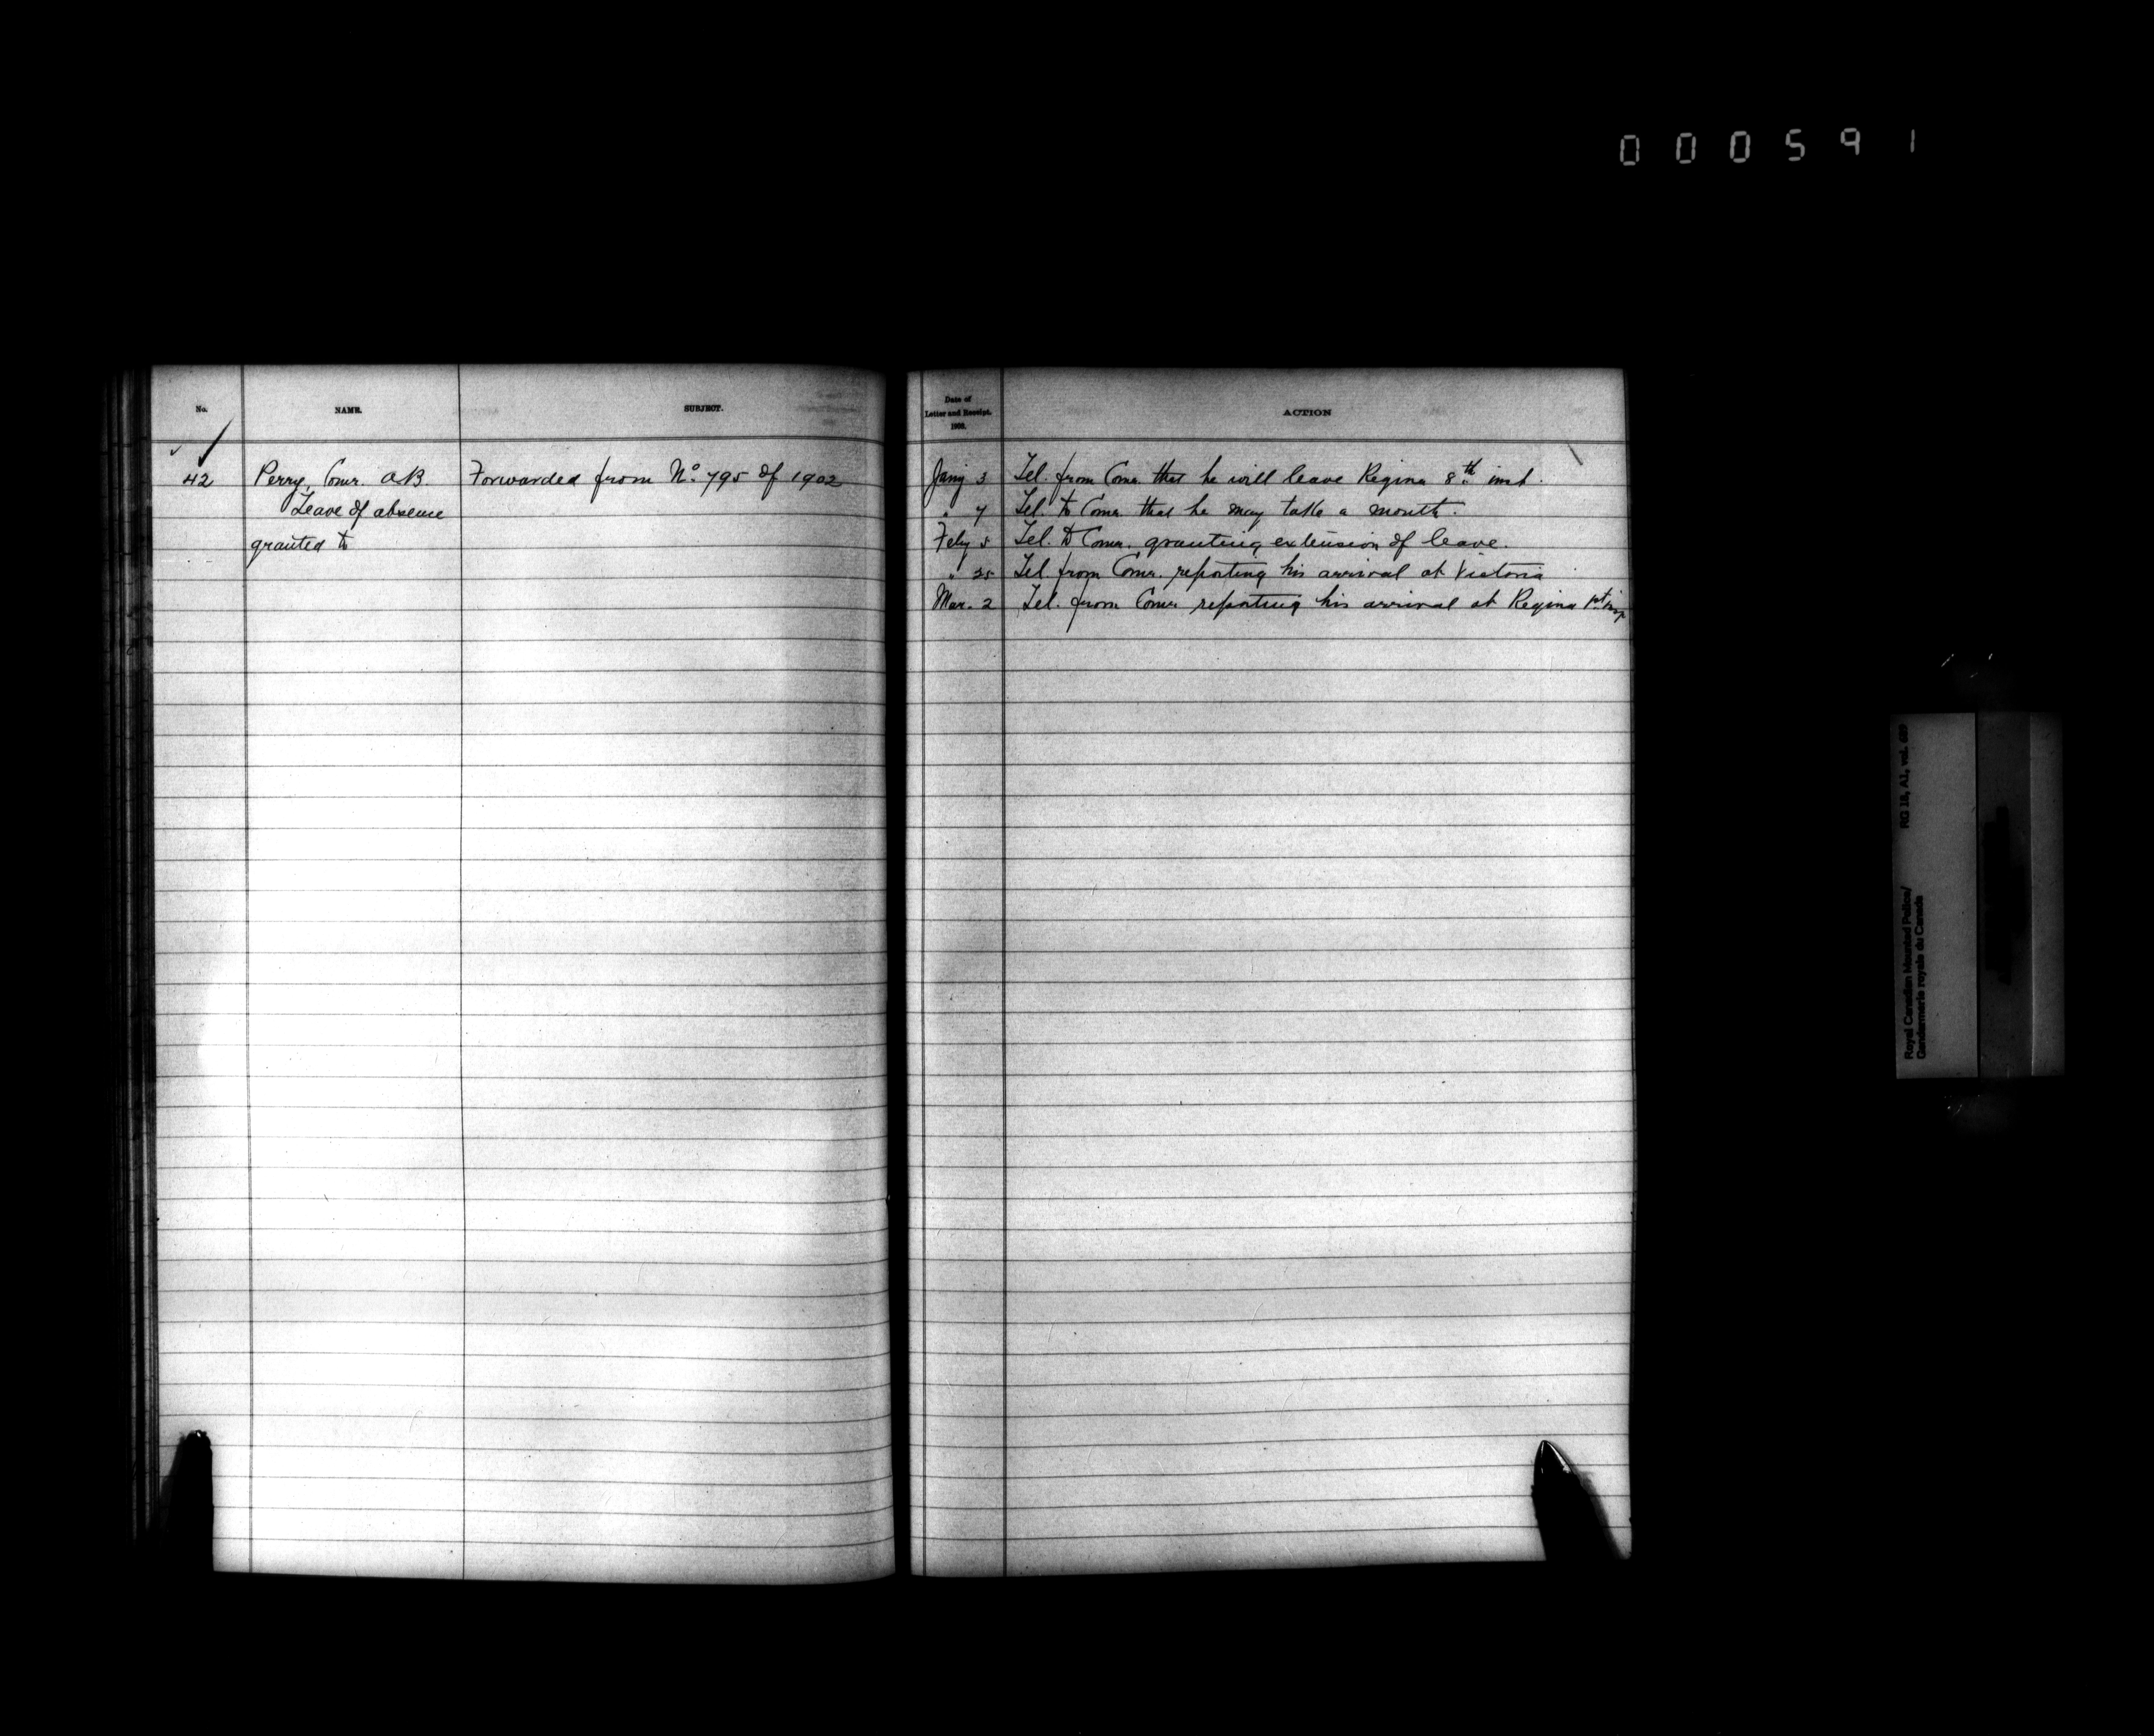 000591
No.
NAME.
SUBJECT.
Date of
Letter and Receipt.
1903.
ACTION
42
Perry, Comr. A.B.
Leave of absence
granted to
Forwarded from No. 795 of 1902
Jany 3 Tel. from Comr. that he will leave Regina 8th inst.
" 7 Tel. to Comr. that he may take a month.
Feby 5 Tel. to Comr. granting extension of leave.
" 25 Tel. from Comr. reporting his arrival at Victoria
Mar. 2 Tel. from Comr. reporting his arrival at Regina 1st inst
Royal Canadian Mounted Police/
Gendarmerie royale du Canada
RG 18, A1, vol.